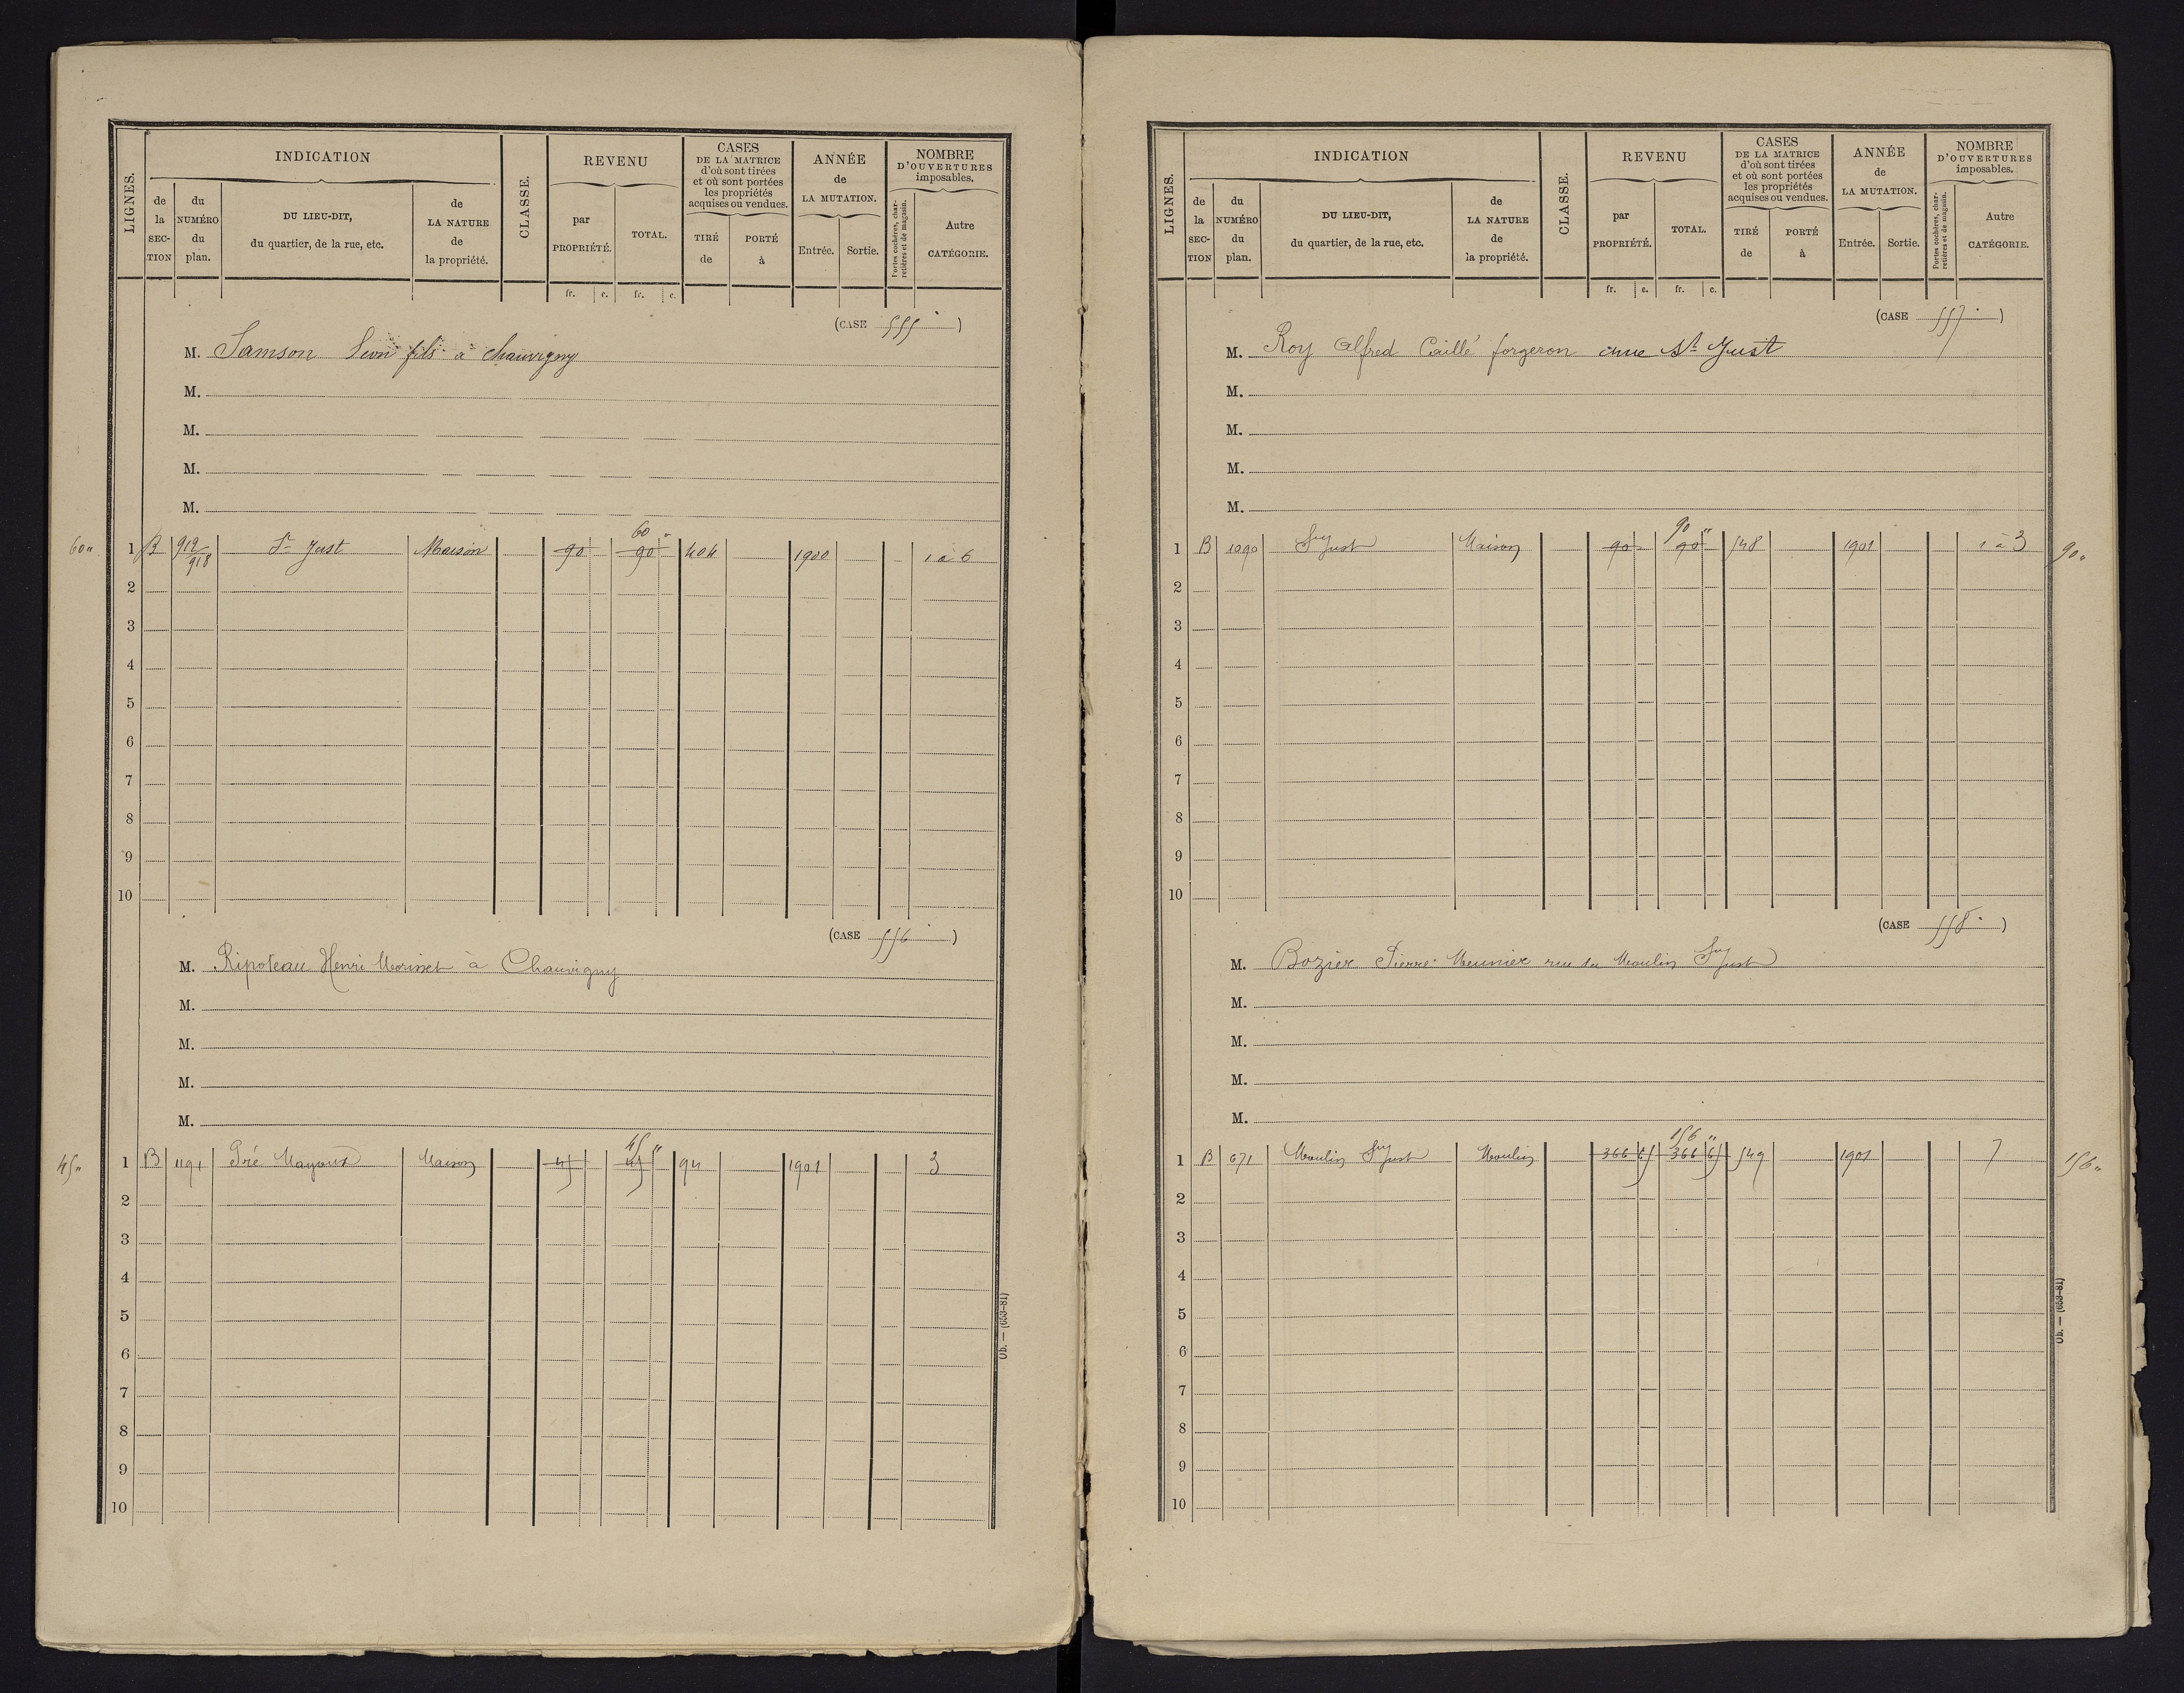 LIGNES.
INDICATION
de la SECTION
du NUMÉRO du plan.
DU LIEU-DIT, du quartier, de la rue, etc.
de LA NATURE de la propriété.
CLASSE.
REVENU
par PROPRIÉTÉ.
TOTAL.
fr. c. fr. c.
CASES DE LA MATRICE d'où sont tirées et où sont portées les propriétés acquises ou vendues.
TIRÉ de
PORTÉ à
ANNÉE de LA MUTATION.
Entrée. Sortie.
NOMBRE D'OUVERTURES imposables.
Portes cochères, charretières et de magasin.
Autre CATÉGORIE.
(CASE 555 )
M. Samson Leon fils à Chauvigny
M.
M.
M.
M.
60 "
60" 1 B 912/918 St Just Maison 90 90 404 1900 1 à 6
2
3
4
5
6
7
8
9
10
(CASE 556 )
M. Ripoteau Henri à Chauvigny
M.
M.
M.
M.
45 "
45" 1 B 1191 Pré Maison 45 45 94 1901 3
2
3
4
5
6
7
8
9
10
Ob. — (653-81)
LIGNES.
INDICATION
de la SECTION
du NUMÉRO du plan.
DU LIEU-DIT, du quartier, de la rue, etc.
de LA NATURE de la propriété.
CLASSE.
REVENU
par PROPRIÉTÉ.
TOTAL.
fr. c. fr. c.
CASES DE LA MATRICE d'où sont tirées et où sont portées les propriétés acquises ou vendues.
TIRÉ de
PORTÉ à
ANNÉE de LA MUTATION.
Entrée. Sortie.
NOMBRE D'OUVERTURES imposables.
Portes cochères, charretières et de magasin.
Autre CATÉGORIE.
(CASE 557 )
M. Roy Alfred Caillé forgeron St Just
M.
M.
M.
M.
90 "
1 B 1090 St Just Maison 90 90 548 1901 1 à 3 90"
2
3
4
5
6
7
8
9
10
(CASE 558 )
M. Bozier Pierre Meunier rue du Moulin St Just
M.
M.
M.
M.
156 "
1 B 671 Moulin St Just Moulin 366 65 366 65 549 1901 7 156"
2
3
4
5
6
7
8
9
10
Ob. — (653-81)